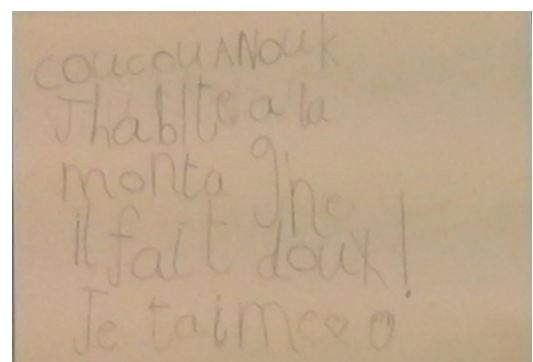 coucou ANOUK
J'habite a la
monta g'ne
il fait doux!
Je t'aime